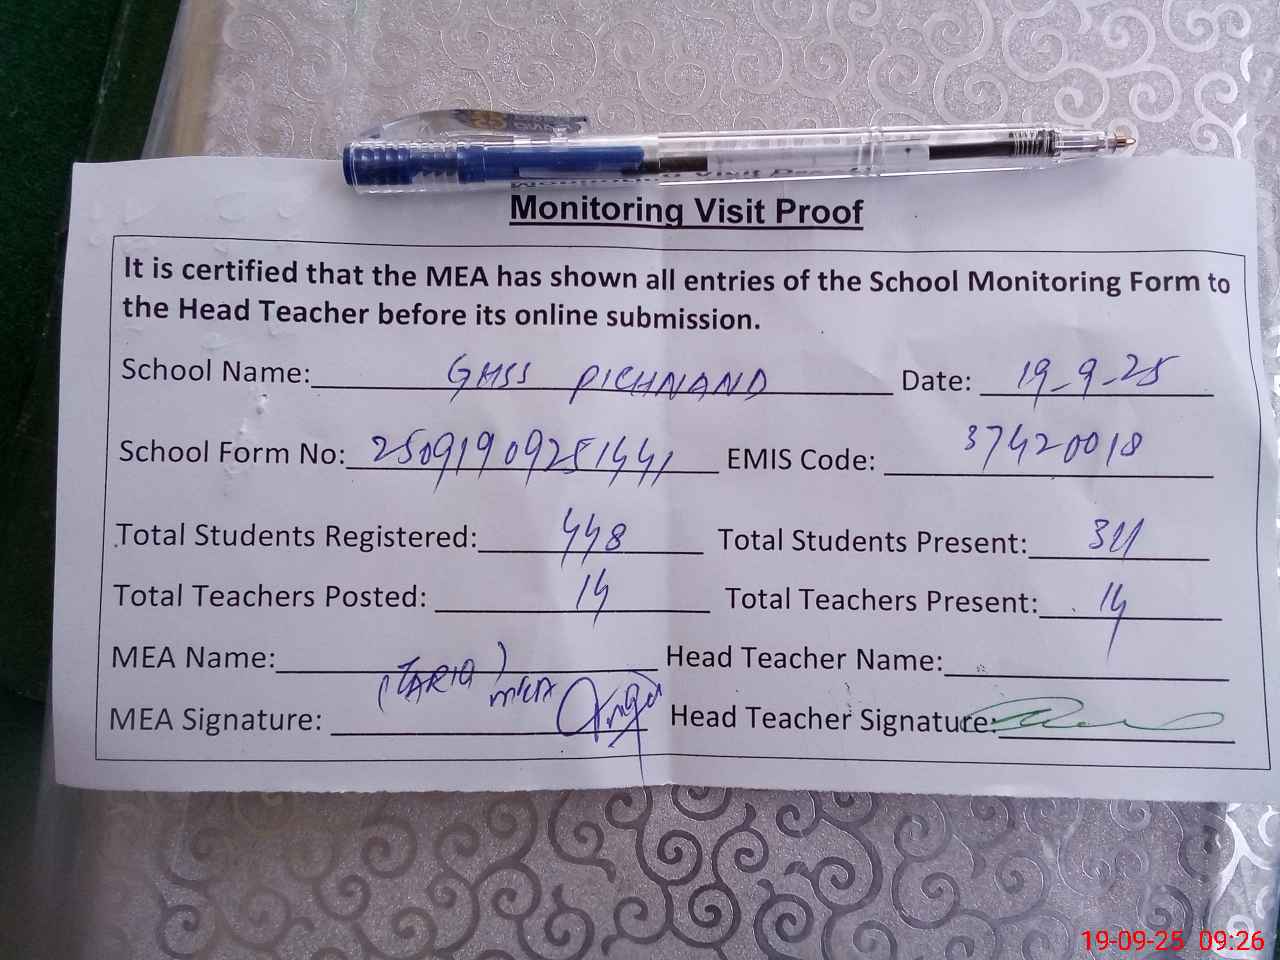 Monitoring Visit Proof
It is certified that the MEA has shown all entries of the School Monitoring Form to
the Head Teacher before its online submission.
School Name: GHSS PICHNAND Date: 19-9-25
School Form No: 25091909251441 EMIS Code: 37420018
Total Students Registered: 448 Total Students Present: 311
Total Teachers Posted: 14 Total Teachers Present: 14
MEA Name: (TARIQ) MEA Head Teacher Name:
MEA Signature: Head Teacher Signature:
19-09-25 09:26